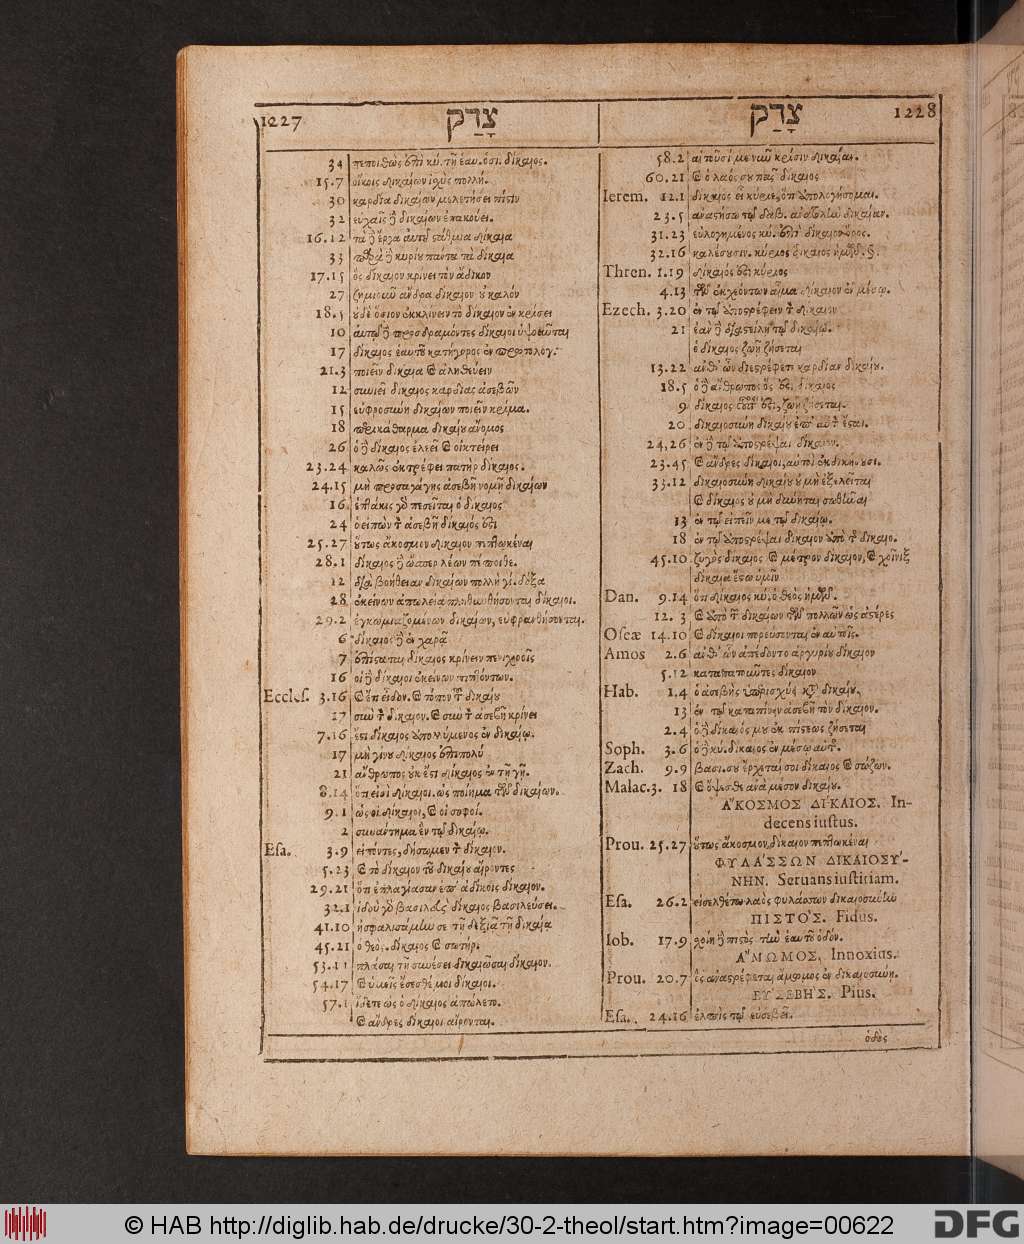 1227 צָדַק
34 πεποιθὼς ἐπὶ κυ. τῇ ἑαυ. ὁσι. δίκαιος.
15.7 οἴκοις δικαίων ἰσχὺς πολλή.
30 καρδία δικαίων μελετήσει πίστιν
32 εὐχαῖς ἢ δικαίων ἐπακούει.
16.12 δίκαια
33 κυρίου πάντα τὰ δίκαια
17.15 ὃς δίκαιον κρίνει τὸν ἄδικον
27 ζημιοῦν ἄνδρα δίκαιον οὐ καλόν
18.5 οὐδὲ ὅσιον ἐκκλίνειν τὸ δίκαιον ἐν κρίσει
10 αὐτῷ ἢ προσδραμόντες δίκαιοι ὑψοῦνται
17 δίκαιος ἑαυτοῦ κατήγορος ἐν πρωτολογ.
21.3 ποιεῖν δίκαια καὶ ἀληθεύειν
12 συνιεῖ δίκαιος καρδίας ἀσεβῶν
15 εὐφροσύνη δικαίων ποιεῖν κρίμα.
18 περικάθαρμα δικαίου ἄνομος
26 ὁ ἢ δίκαιος ἐλεεῖ καὶ οἰκτείρει
23.24 καλῶς ἐκτρέφει πατὴρ δίκαιος.
24.15 μὴ προσαγάγῃς ἀσεβῆ νομῇ δικαίων
16 ἑπτάκις γὰρ πεσεῖται ὁ δίκαιος
24 ὁ εἰπὼν τὸν ἀσεβῆ δίκαιός ἐστι
25.27 οὕτως ἄκοσμον δίκαιον πεπτωκέναι
28.1 δίκαιος ἢ ὥσπερ λέων πέποιθε.
12 διὰ βοήθειαν δικαίων πολλὴ γί. δόξα
28 ἐκείνων ἀπωλείᾳ πληθυνθήσονται δίκαιοι.
29.2 ἐγκωμιαζομένων δικαίων, εὐφρανθήσονται
6 δίκαιος ἢ ἐν χαρᾷ
7 ἐπίσταται δίκαιος κρίνειν πενιχροῖς
16 οἱ ἢ δίκαιοι ἐκείνων πιπτόντων.
Eccles. 3.16 καὶ ἔτι εἶδον. καὶ τόπον τοῦ δικαίου
17 σὺν τὸν δίκαιον. καὶ σὺν τὸν ἀσεβῆ κρίνει
7.16 ἔστι δίκαιος ἀπολλύμενος ἐν δικαίῳ.
17 μὴ γίνου δίκαιος ἐπὶ πολύ
21 ἄνθρωπος οὐκ ἔστι δίκαιος ἐν τῇ γῇ.
8.14 ὅτι εἰσὶ δίκαιοι. ὡς ποίημα τῶν δικαίων.
9.1 ὡς οἱ δίκαιοι, καὶ οἱ σοφοί.
2 συνάντημα ἓν τῷ δικαίῳ.
Esa. 3.9 εἰπόντες, δήσωμεν τὸν δίκαιον.
5.23 καὶ τὸ δίκαιον τοῦ δικαίου αἴροντες
29.21 ὅτι ἐπλαγίασαν ἐπ' ἀδίκοις δίκαιον.
32.1 ἰδοὺ γὰρ βασιλεὺς δίκαιος βασιλεύσει.
41.10 ἠσφαλισάμην σε τῇ δεξιᾷ τῇ δικαίᾳ
45.21 ὁ θεὸς. δίκαιος καὶ σωτήρ.
53.11 πλάσαι τῇ συνέσει δικαιῶσαι δίκαιον.
54.17 καὶ ὑμεῖς ἔσεσθέ μοι δίκαιοι.
57.1 ἴδετε ὡς ὁ δίκαιος ἀπώλετο.
καὶ ἄνδρες δίκαιοι αἴρονται.
צָדַק 1228
58.2 αἰτοῦσί με νῦν κρίσιν δικαίαν.
60.21 καὶ ὁ λαός σου πᾶς δίκαιος
Ierem. 12.1 δίκαιος εἶ κύριε, ὅτι ἀπολογήσομαι.
23.5 ἀναστήσω τῷ δαβ. ἀνατολὴν δικαίαν.
31.23 εὐλογημένος κύ. ἐπὶ δίκαιον ὄρος.
32.16 καλέσουσιν. κύριος δίκαιος ἡμῶν. §.
Thren. 1.19 δίκαιός ἐστι κύριος
4.13 τῶν ἐκχεόντων αἷμα δίκαιον ἐν μέσῳ.
Ezech. 3.20 ἐν τῷ ἀποστρέφειν τὸν δίκαιον
21 ἐὰν ἢ διαστείλῃ τῷ δικαίῳ.
ὁ δίκαιος ζωῇ ζήσεται
13.22 ἀνθ' ὧν διεστρέφετε καρδίαν δικαίου.
18.5 ὁ ἢ ἄνθρωπος ὅς ἐστι δίκαιος
9 δίκαιος οὗτός ἐστι, ζωῇ ζήσεται.
20 δικαιοσύνη δικαίου ἐπ' αὐτὸν ἔσται.
24,26 ἐν ἢ τῷ ἀποστρέψαι δίκαιον.
23.45 καὶ ἄνδρες δίκαιοι, αὐτοὶ ἐκδικήσουσι.
33.12 δικαιοσύνη δικαίου οὐ μὴ ἐξελεῖται
καὶ δίκαιος οὐ μὴ δύνηται σωθῆναι
13 ἐν τῷ εἰπεῖν με τῷ δικαίῳ.
18 ἐν τῷ ἀποστρέψαι δίκαιον ἀπὸ τῆς δικαιο.
45.10 ζυγὸς δίκαιος καὶ μέτρον δίκαιον, καὶ χοῖνιξ
δικαία ἔστω ὑμῖν
Dan. 9.14 ὅτι δίκαιος κύ. ὁ θεὸς ἡμῶν.
12. 3 καὶ ἀπὸ τῶν δικαίων τῶν πολλῶν ὡς ἀστέρες
Oseæ 14.10 καὶ δίκαιοι πορεύσονται ἐν αὐταῖς.
Amos 2.6 ἀνθ' ὧν ἀπέδοντο ἀργυρίου δίκαιον
5.12 καταπατοῦντες δίκαιον
Hab. 1.4 ὁ ἀσεβὴς δίκαιον.
13 ἐν τῷ καταπίνειν ἀσεβῆ τὸν δίκαιον.
2.4 ὁ ἢ δίκαιός μου ἐκ πίστεως ζήσεται
Soph. 3.6 ὁ ἢ κύ. δίκαιος ἐν μέσῳ αὐτῆς.
Zach. 9.9 βασι. σου ἔρχεταί σοι δίκαιος καὶ σώζων.
Malac. 3. 18 καὶ ὄψεσθε ἀνὰ μέσον δικαίου.
ἌΚΟΣΜΟΣ ΔΙΚΑΙΟΣ. In-
decens iustus.
Prou. 25.27 οὕτως ἄκοσμον, δίκαιον πεπτωκέναι
ΦΥΛΆΣΣΩΝ ΔΙΚΑΙΟΣΎ-
ΝΗΝ. Seruans iustitiam.
Esa. 26.2 εἰσελθέτω λαὸς φυλάσσων δικαιοσύνην
ΠΙΣΤΌΣ. Fidus.
Iob. 17.9 σχοίη ἢ πιστὸς τὴν ἑαυτοῦ ὁδόν.
ἌΜΩΜΟΣ, Innoxius.
Prou. 20.7 ὃς ἀναστρέφεται ἄμωμος ἐν δικαιοσύνῃ.
ΕΥ̓ΣΕΒΉΣ. Pius.
Esa. 24.16 ἐλπὶς τῷ εὐσεβεῖ.
ὁδὸς
© HAB http://diglib.hab.de/drucke/30-2-theol/start.htm?image=00622
DFG